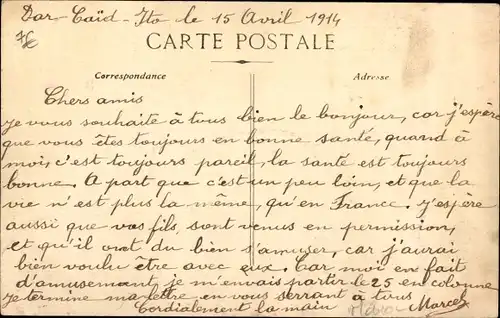 Dar-Caïd-Ito le 15 Avril 1914
CARTE POSTALE
Correspondance
Adresse
Chers amis
je vous souhaite à tous bien le bonjour, car j'espère
que vous êtes toujours en bonne santé, quand à
moi, c'est toujours pareil, la santé est toujours
bonne. A part que c'est un peu loin, et que la
vie n'est plus la même, qu'en France. J'espère
aussi que vos fils, sont venus en permission,
et qu'il ont du bien s'amuser, car j'aurai
bien voulu être avec eux. Car moi en fait
d'amusement je m'envais partir le 25 en colonne
je termine ma lettre en vous serrant à tous
Cordialement la main Marcel